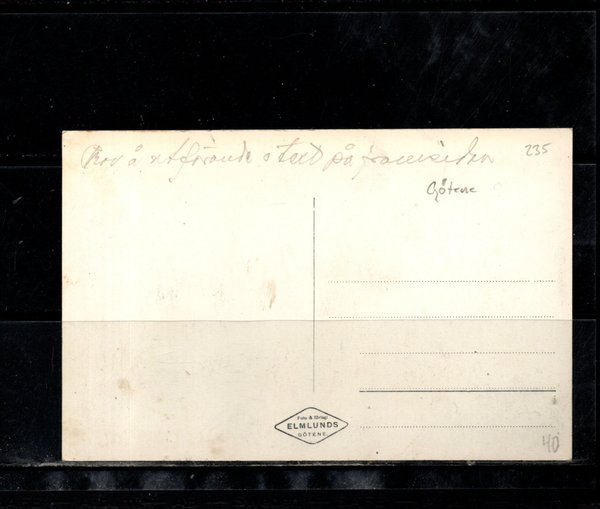 Prov å utförande o text på framsidan 235
Götene
Foto & förlag:
ELMLUNDS
GÖTENE.
40